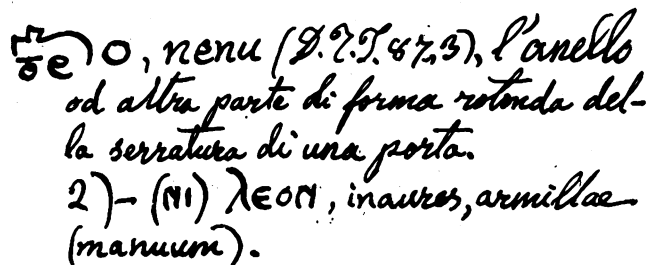 O, nenu (D.T.T. 87,3), l'anello
od altra parte di forma rotonda del-
la serratura di una porta.
2) - (ΝΙ) λεοΝ, inaures, armillae
(manuum).